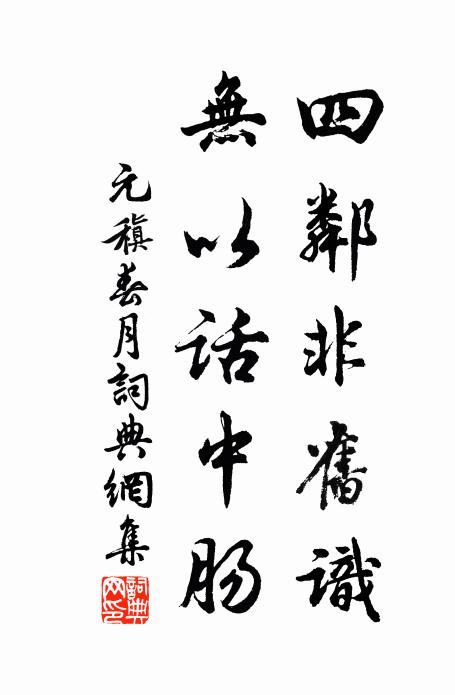 四鄰非舊識
無以話中腸
元稹春月詞典網集
詞典網印